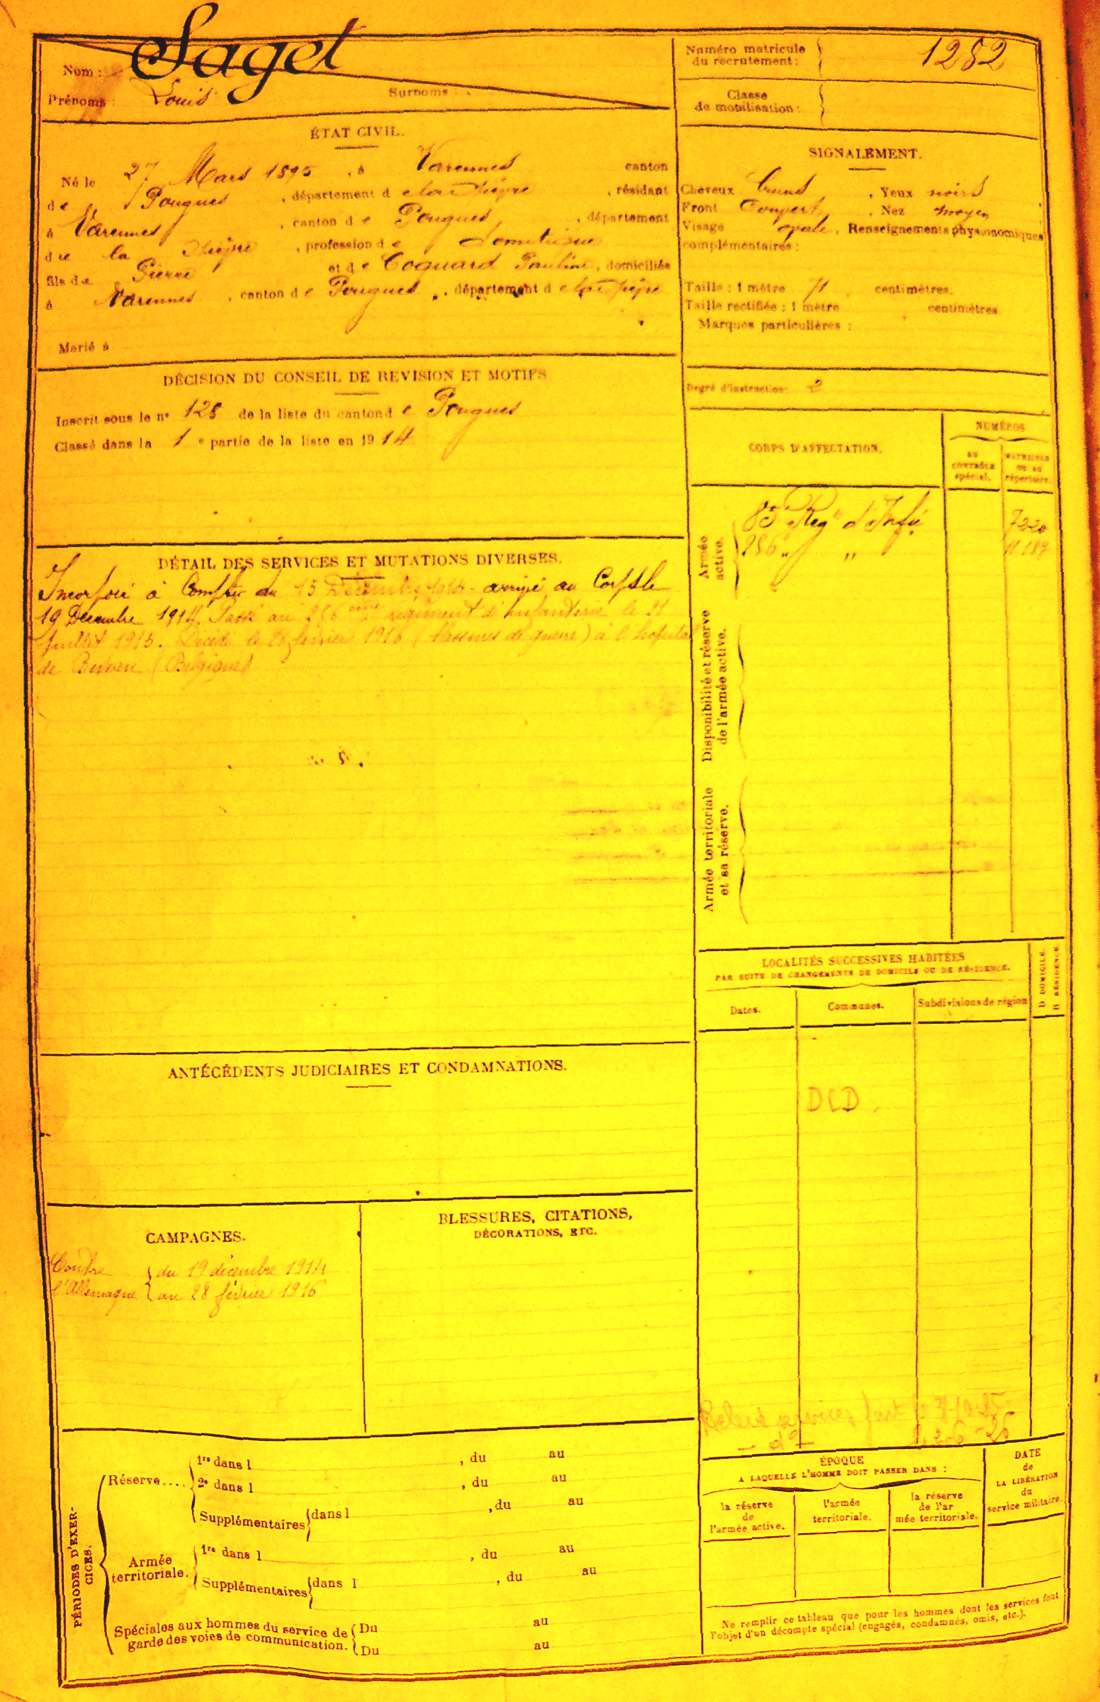 Nom : Saget
Prénoms : Louis Surnoms :
Numéro matricule
du recrutement : 1282
Classe
de mobilisation :
ÉTAT CIVIL.
Né le 27 Mars 1895, à Varennes canton
de Pougues, département de la Nièvre, résidant
à Varennes, canton de Pougues, département
de la Nièvre, profession de domestique
fils de Pierre et de Coquard Pauline, domiciliés
à Varennes, canton de Pougues, département de la Nièvre
Marié à
SIGNALEMENT.
Cheveux bruns, Yeux noirs
Front couvert, Nez moyen
Visage ovale, Renseignements physionomiques
complémentaires :
Taille : 1 mètre 71 centimètres.
Taille rectifiée : 1 mètre centimètres
Marques particulières :
Degré d'instruction : 2
DÉCISION DU CONSEIL DE REVISION ET MOTIFS
Inscrit sous le n° 128 de la liste du canton de Pougues
Classé dans la 1e partie de la liste en 1914
CORPS D'AFFECTATION.
NUMÉROS
AU
CONTRÔLE
spécial.
MATRICULE
OU AU
répertoire.
Armée
active.
85e Reg d'Infie 7220
256 " "
Disponibilité et réserve
de l'armée active.
Armée territoriale
et sa réserve.
DÉTAIL DES SERVICES ET MUTATIONS DIVERSES.
Incorporé à Compter du 15 Décembre 1914 arrivé au Corps le
19 Décembre 1914. Passé au 256 ème régiment d'infanterie le 21
Juillet 1915. Décédé le 28 février 1916 (blessures de guerre) à l'hopital
de (Belgique)
LOCALITÉS SUCCESSIVES HABITÉES
PAR SUITE DE CHANGEMENTS DE DOMICILE OU DE RÉSIDENCE.
Dates. Communes. Subdivisions de région
D. DOMICILE.
R. RÉSIDENCE.
DCD.
ANTÉCÉDENTS JUDICIAIRES ET CONDAMNATIONS.
CAMPAGNES.
Contre du 19 décembre 1914
l'Allemagne au 28 février 1916
BLESSURES, CITATIONS,
DÉCORATIONS, ETC.
PÉRIODES D'EXER-
CICES.
Réserve....
1re dans l , du au
2e dans l , du au
Supplémentaires dans l , du au
Armée
territoriale.
1re dans l , du au
Supplémentaires dans l , du au
Spéciales aux hommes du service de
garde des voies de communication.
Du au
Du au
ÉPOQUE
A LAQUELLE L'HOMME DOIT PASSER DANS :
la réserve
de
l'armée active.
l'armée
territoriale.
la réserve
de l'ar
mée territoriale.
DATE
de
LA LIBÉRATION
du
service militaire.
Ne remplir ce tableau que pour les hommes dont les services font
l'objet d'un décompte spécial (engagés, condamnés, omis, etc.).